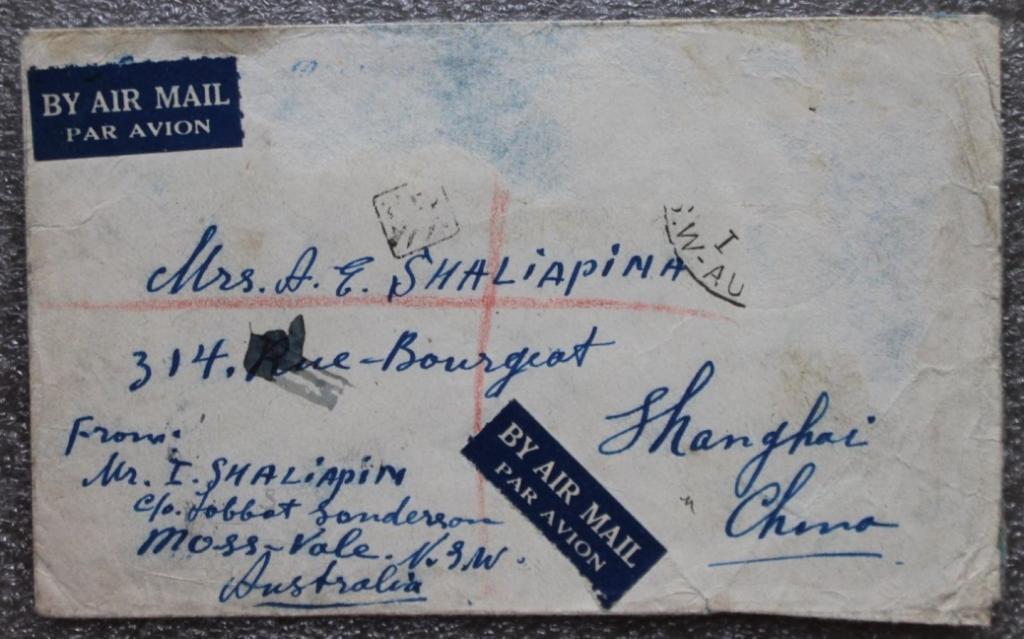 BY AIR MAIL
PAR AVION
I
.W-AU
Mrs. A. E. SHALIAPINA
314. Rue-Bourgeat
Shanghai
China
From:
Mr. I. SHALIAPIN
c/o. Sanderson
Moss-Vale. N.S.W.
Australia
BY AIR MAIL
PAR AVION